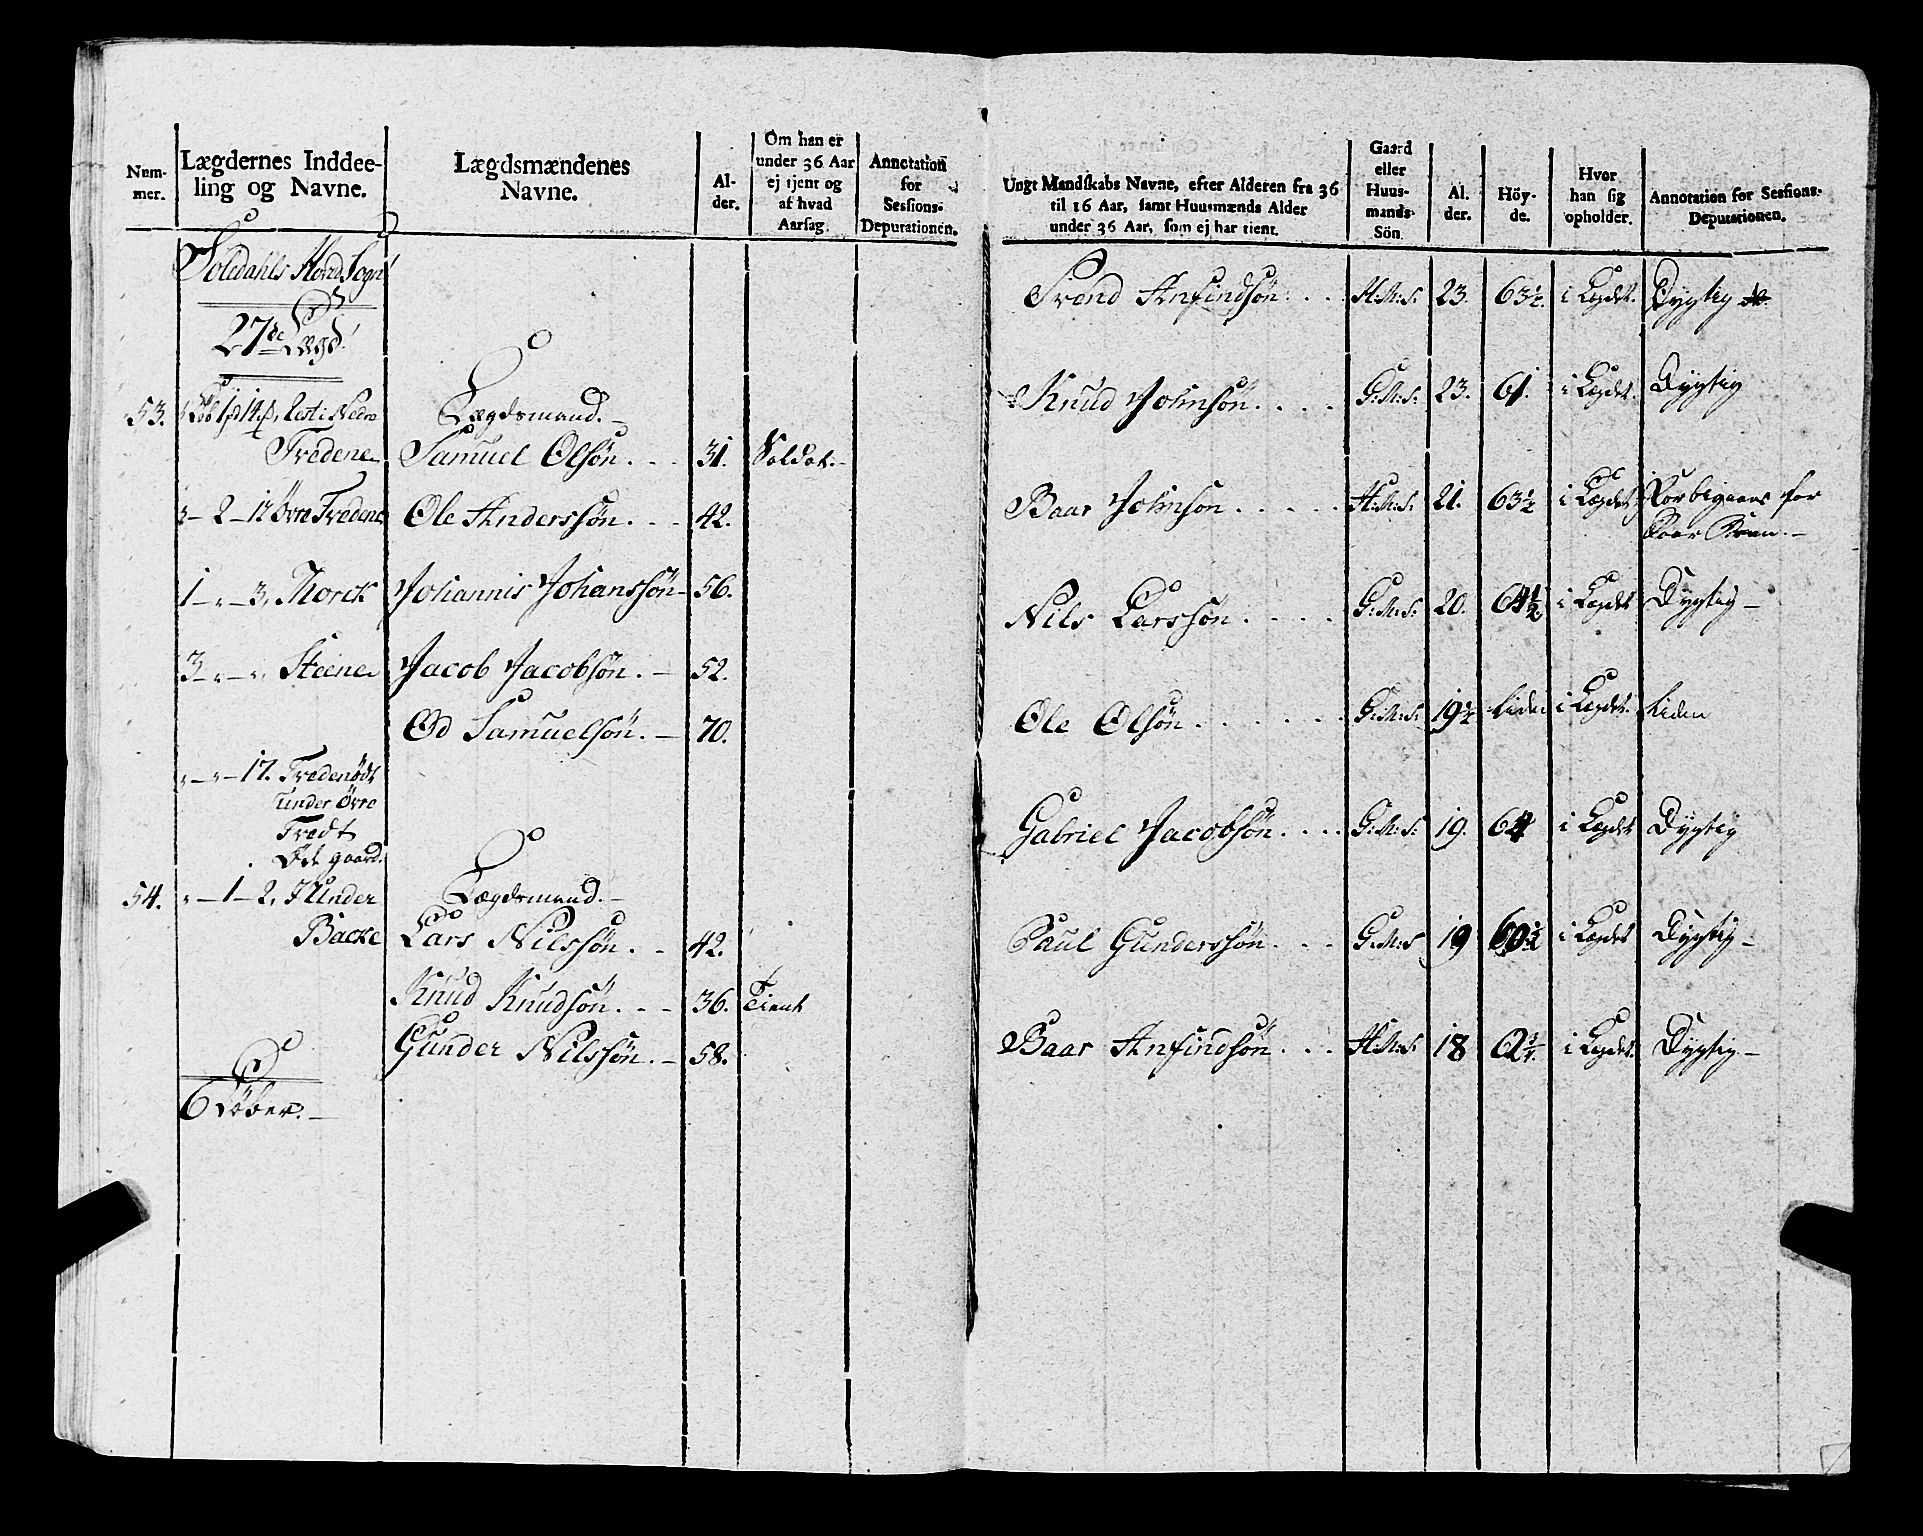 Num-
mer.
Lægdernes Inddee-
ling og Navne.
Lægdsmændenes
Navne.
Al-
der.
Om han er
under 36 Aar
ej tjent og
af hvad
Aarsag
Annotation
for
Sessions-
Deputationen.
Soledahls Hoved Sogn
27de Lægd
53. 1 Løb 1 pd 14 , Rest: Nedre Lægdsmand.
Tredene Samuel Olsøn. 31. Soldat.
" - 2 - 12 Øvre Tredene Ole Anderssøn. 42.
1 - " - 3, Thorck Johannis Johanssøn 56.
3 - " - " Steene Jacob Jacobsøn. 52.
Od Samuelsøn. 70.
" - " - 17. Tredenødt
under Øvre
Tredt
Øde gaard.
54. " - 1 - 2, Hunder Lægdsmand.
Backe Lars Nilssøn. 42.
Knud Knudsøn. 36. Tient
Gunder Nilssøn. 58.
6 Løber.
Ungt Mandskabs Navne, efter Alderen fra 36
til 16 Aar, samt Huusmænds Alder
under 36 Aar, som ej har tient.
Gaard
eller
Huus-
mands-
Sön
Al.
der.
Höy-
de.
Hvor
han sig
opholder.
Annotation for Sessions-
Deputationen.
Svend Anfindsøn. H:M:S: 23. 63½. i Lægdet. Dygtig
Knud Johnsøn. G:M:S: 23. 61. i Lægdet. Dygtig
Baar Johnsøn H:M:S: 21. 63½ i Lægdet Forbigaaes for
Nils Larssøn. G:M:S: 20. 64½ i Lægdet Dygtig
Ole Olsøn. G:M:S: 19½ liden i Lægdet. liden
Gabriel Jacobsøn. G:M:S: 19. 64 i Lægdet Dygtig
Paul Gunderssøn. G:M:S 19 60½ i Lægdet Dygtig
Baar Anfindsøn. H:M:S: 18 i Lægdet. Dygtig